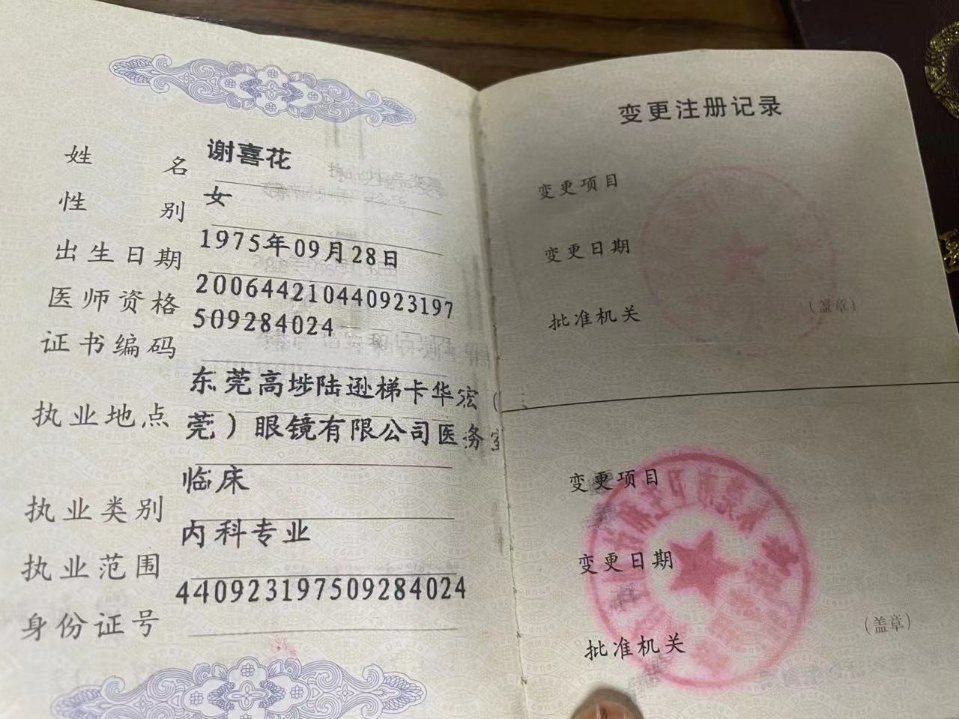 姓名 谢喜花
性别 女
出生日期 1975年09月28日
医师资格 200644210440923197
证书编码 509284024
执业地点 东莞高埗陆逊梯卡华宏(
莞)眼镜有限公司医务室
执业类别 临床
执业范围 内科专业
身份证号 440923197509284024
变更注册记录
变更项目
变更日期
批准机关
(盖章)
变更项目
变更日期
批准机关
(盖章)